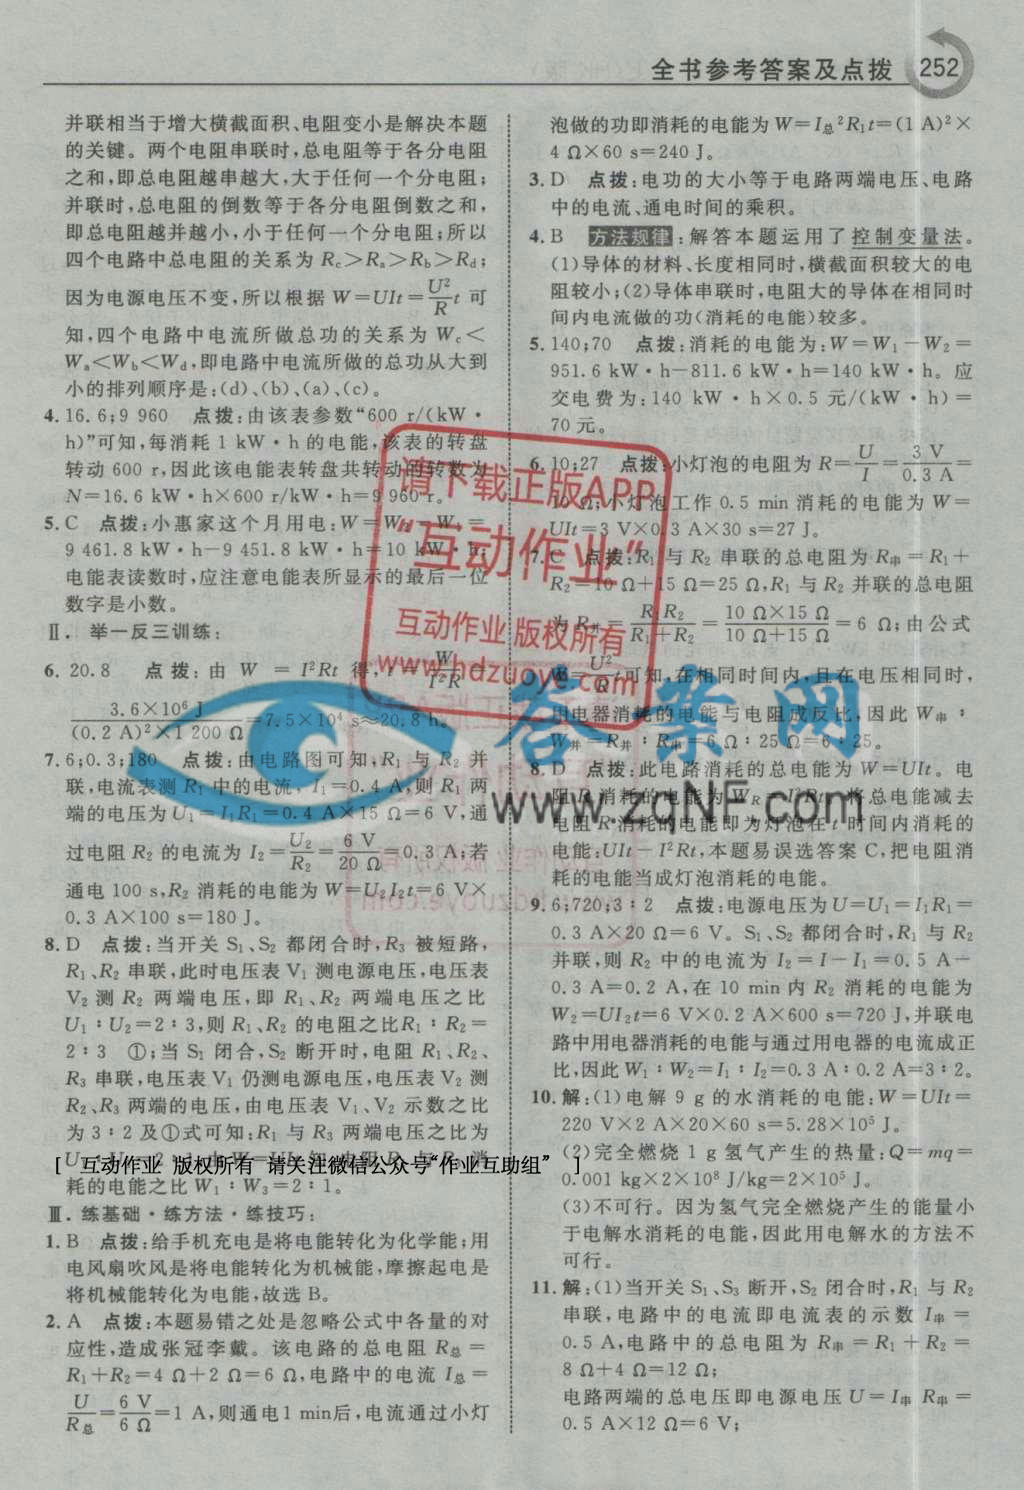 全书参考答案及点拨 252
并联相当于增大横截面积、电阻变小是解决本题
的关键。两个电阻串联时,总电阻等于各分电阻
之和,即总电阻越串越大,大于任何一个分电阻;
并联时,总电阻的倒数等于各分电阻倒数之和,
即总电阻越并越小,小于任何一个分电阻;所以
四个电路中总电阻的关系为 Rc>Ra>Rb>Rd;
因为电源电压不变,所以根据 W=UIt=U²/R t 可
知,四个电路中电流所做总功的关系为 Wc<
Wa<Wb<Wd,即电路中电流所做的总功从大到
小的排列顺序是:(d)、(b)、(a)、(c)。
4. 16.6;9 960 点拨:由该表参数“600 r/(kW·
h)”可知,每消耗 1 kW·h 的电能,该表的转盘
转动 600 r,因此该电能表转盘共转动的转数为
N=16.6 kW·h×600 r/kW·h=9 960 r。
5. C 点拨:小惠家这个月用电:W=W₂-W₁=
9 461.8 kW·h-9 451.8 kW·h=10 kW·h;
电能表读数时,应注意电能表所显示的最后一位
数字是小数。
Ⅱ. 举一反三训练:
6. 20.8 点拨:由 W = I²Rt 得,t = W/I²R =
3.6×10⁶ J/(0.2 A)²×1 200 Ω=7.5×10⁴ s≈20.8 h。
7. 6;0.3;180 点拨:由电路图可知,R₁ 与 R₂ 并
联,电流表测 R₁ 中的电流,I₁=0.4 A,则 R₁ 两
端的电压为 U₁=I₁R₁=0.4 A×15 Ω=6 V,通
过电阻 R₂ 的电流为 I₂=U₂/R₂=6 V/20 Ω=0.3 A;若
通电 100 s,R₂ 消耗的电能为 W=U₂I₂t=6 V×
0.3 A×100 s=180 J。
8. D 点拨:当开关 S₁、S₂ 都闭合时,R₃ 被短路,
R₁、R₂ 串联,此时电压表 V₁ 测电源电压,电压表
V₂ 测 R₂ 两端电压,即 R₁、R₂ 两端电压之比
U₁∶U₂=2∶3,则 R₁、R₂ 的电阻之比R₁∶R₂=
2∶3 ①;当 S₁ 闭合,S₂ 断开时,电阻 R₁、R₂、
R₃ 串联,电压表 V₁ 仍测电源电压,电压表 V₂ 测
R₂、R₃ 两端的电压,由电压表 V₁、V₂ 示数之比
为 3∶2 及①式可知:R₁ 与 R₃ 两端电压之比为
[ 互动作业 版权所有 请关注微信公众号“作业互助组” ]
耗的电能之比 W₁∶W₃=2∶1。
Ⅲ. 练基础·练方法·练技巧:
1. B 点拨:给手机充电是将电能转化为化学能;用
电风扇吹风是将电能转化为机械能,摩擦起电是
将机械能转化为电能,故选 B。
2. A 点拨:本题易错之处是忽略公式中各量的对
应性,造成张冠李戴。该电路的总电阻 R总=
R₁+R₂=4 Ω+2 Ω=6 Ω,电路中的电流 I总=
U/R总=6 V/6 Ω=1 A,则通电1 min后,电流通过小灯
泡做的功即消耗的电能为 W=I总²R₁t=(1 A)²×
4 Ω×60 s=240 J。
3. D 点拨:电功的大小等于电路两端电压、电路
中的电流、通电时间的乘积。
4. B 方法规律:解答本题运用了控制变量法。
(1)导体的材料、长度相同时,横截面积较大的电
阻较小;(2)导体串联时,电阻大的导体在相同时
间内电流做的功(消耗的电能)较多。
5. 140;70 点拨:消耗的电能为:W=W₁-W₂=
951.6 kW·h-811.6 kW·h=140 kW·h。应
交电费为:140 kW·h×0.5 元/(kW·h)=
70 元。
6. 10;27 点拨:小灯泡的电阻为 R=U/I=3 V/0.3 A=
10 Ω;小灯泡工作 0.5 min 消耗的电能为 W=
UIt=3 V×0.3 A×30 s=27 J。
7. C 点拨:R₁ 与 R₂ 串联的总电阻为 R串=R₁+
R₂=10 Ω+15 Ω=25 Ω,R₁ 与 R₂ 并联的总电阻
为 R并=R₁R₂/R₁+R₂=10 Ω×15 Ω/10 Ω+15 Ω=6 Ω;由公式
W=U²/R t可知,在相同时间内,且在电压相同时,
用电器消耗的电能与电阻成反比,因此 W串∶
W并=R并∶R串=6 Ω∶25 Ω=6∶25。
8. D 点拨:此电路消耗的总电能为 W=UIt。电
阻 R 消耗的电能为 WR=I²Rt,将总电能减去
电阻 R 消耗的电能即为灯泡在 t 时间内消耗的
电能:UIt-I²Rt,本题易误选答案 C,把电阻消
耗的电能当成灯泡消耗的电能。
9. 6;720;3∶2 点拨:电源电压为 U=U₁=I₁R₁=
0.3 A×20 Ω=6 V。S₁、S₂ 都闭合时,R₁ 与 R₂
并联,则 R₂ 中的电流为 I₂=I-I₁=0.5 A-
0.3 A=0.2 A,在 10 min 内 R₂ 消耗的电能为
W₂=UI₂t=6 V×0.2 A×600 s=720 J,并联电
路中用电器消耗的电能与通过用电器的电流成正
比,因此 W₁∶W₂=I₁∶I₂=0.3 A∶0.2 A=3∶2。
10. 解:(1)电解 9 g 的水消耗的电能:W=UIt=
220 V×2 A×20×60 s=5.28×10⁵ J。
(2)完全燃烧 1 g 氢气产生的热量:Q=mq=
0.001 kg×2×10⁸ J/kg=2×10⁵ J。
(3)不可行。因为氢气完全燃烧产生的能量小
于电解水消耗的电能,因此用电解水的方法不
可行。
11. 解:(1)当开关 S₁、S₃ 断开,S₂ 闭合时,R₁ 与 R₂
串联,电路中的电流即电流表的示数 I串=
0.5 A,电路中的总电阻为 R串=R₁+R₂=
8 Ω+4 Ω=12 Ω;
电路两端的总电压即电源电压 U=I串R串=
0.5 A×12 Ω=6 V;
请下载正版APP
“互动作业”
互动作业 版权所有
www.hdzuoye.com
答案网
www.zqNF.com